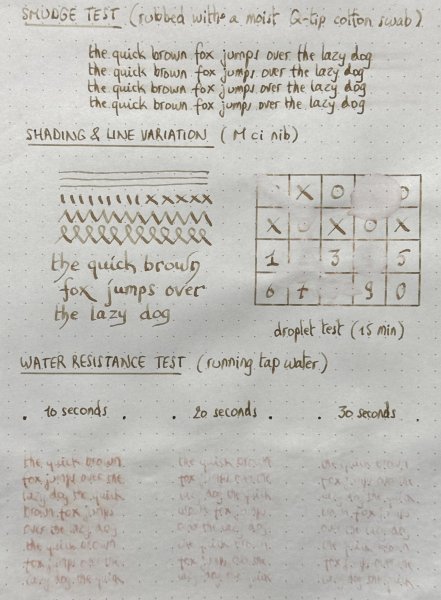 SMUDGE TEST (rubbed with a moist Q-tip cotton swab)
the quick brown fox jumps over the lazy dog
the quick brown fox jumps over the lazy dog
the quick brown fox jumps over the lazy dog
the quick brown fox jumps over the lazy dog
SHADING & LINE VARIATION (M ci nib)
the quick brown
fox jumps over
the lazy dog
X O O
X O X O X
1 3 5
6 7 9 0
droplet test (15 min)
WATER RESISTANCE TEST (running tap water)
. 10 seconds . 20 seconds . 30 seconds .
the quick brown the quick brown the quick brown
fox jumps over the fox jumps over the fox jumps over the
lazy dog the quick lazy dog the quick lazy dog the quick
brown fox jumps brown fox jumps brown fox jumps
over the lazy dog over the lazy dog over the lazy dog
the quick brown the quick brown the quick brown
fox jumps over the fox jumps over the fox jumps over the
lazy dog the quick lazy dog the quick lazy dog the quick